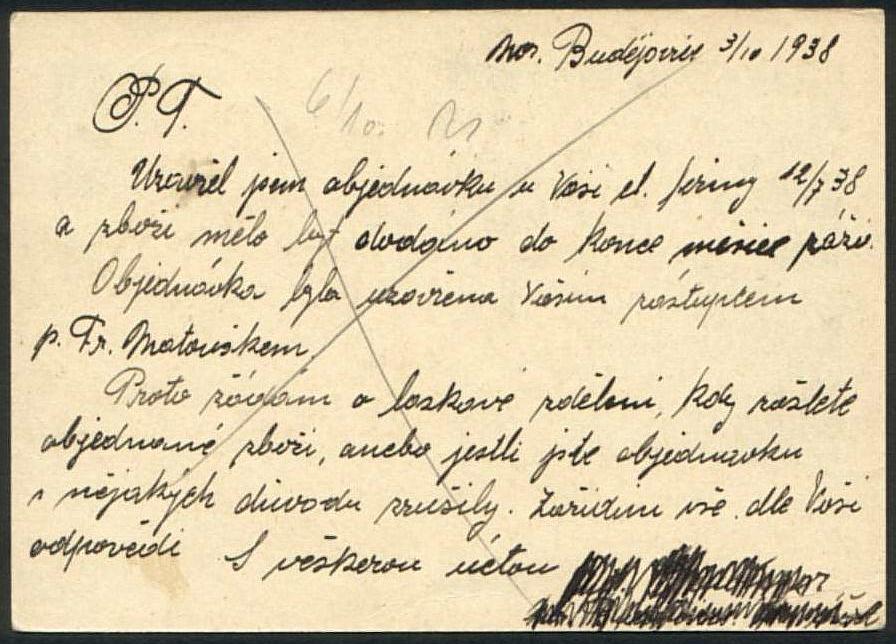 Mor. Budějovice 3/10 1938
6/10.
P. T.
Uzavřel jsem objednávku u Vaší ct. firmy 12/7 38
a zboží mělo být dodáno do konce měsíce září.
Objednávka byla uzavřena Vašim zástupcem
p. Fr. Matouškem.
Proto žádám o laskavé sdělení, kdy zašlete
objednané zboží, anebo jestli jste objednavku
z nějakých důvodu zrušily. Zařidim vše dle Vaší
odpovědi S veškerou úctou